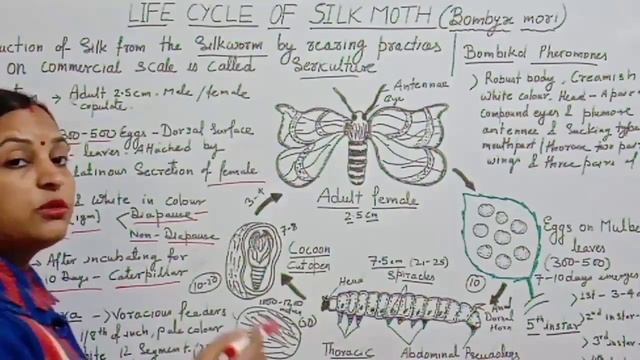 LIFE CYCLE OF SILK MOTH (Bombyx mori)
uction of Silk from the Silkworm by rearing practices
on commercial scale is called Sericulture
Bombikol Pheromones
→ Adult 2.5cm. Male/female
copulate.
300-500 Eggs - Dorsal Surface
leaves. Attached by
latinous Secretion of female
& White in colour
Diapause
Non-Diapause
→ After incubating for
10 Days - Caterpillar
→ Voracious feeders
1/8th of inch, pale colour
12 Segment.
Antennae
Eye
Adult female
2.5 cm
) Robust body, Creamish
white colour. Head - A pair
compound eyes & plumose
antennae & Sucking type
mouthpart / Thorax two pair
wings & three pairs of
Eggs on Mulbe
leaves
(300-500)
7-10 days emerge
10
1st - 3-4
5th instar
2nd instar
3rd inst
7-8
Cocoon
Cut open
10-20
7.5cm (21-25)
Spiracles
Head
Anal
Dorsal
Horn
Thoracic
Abdominal Pseudolegs